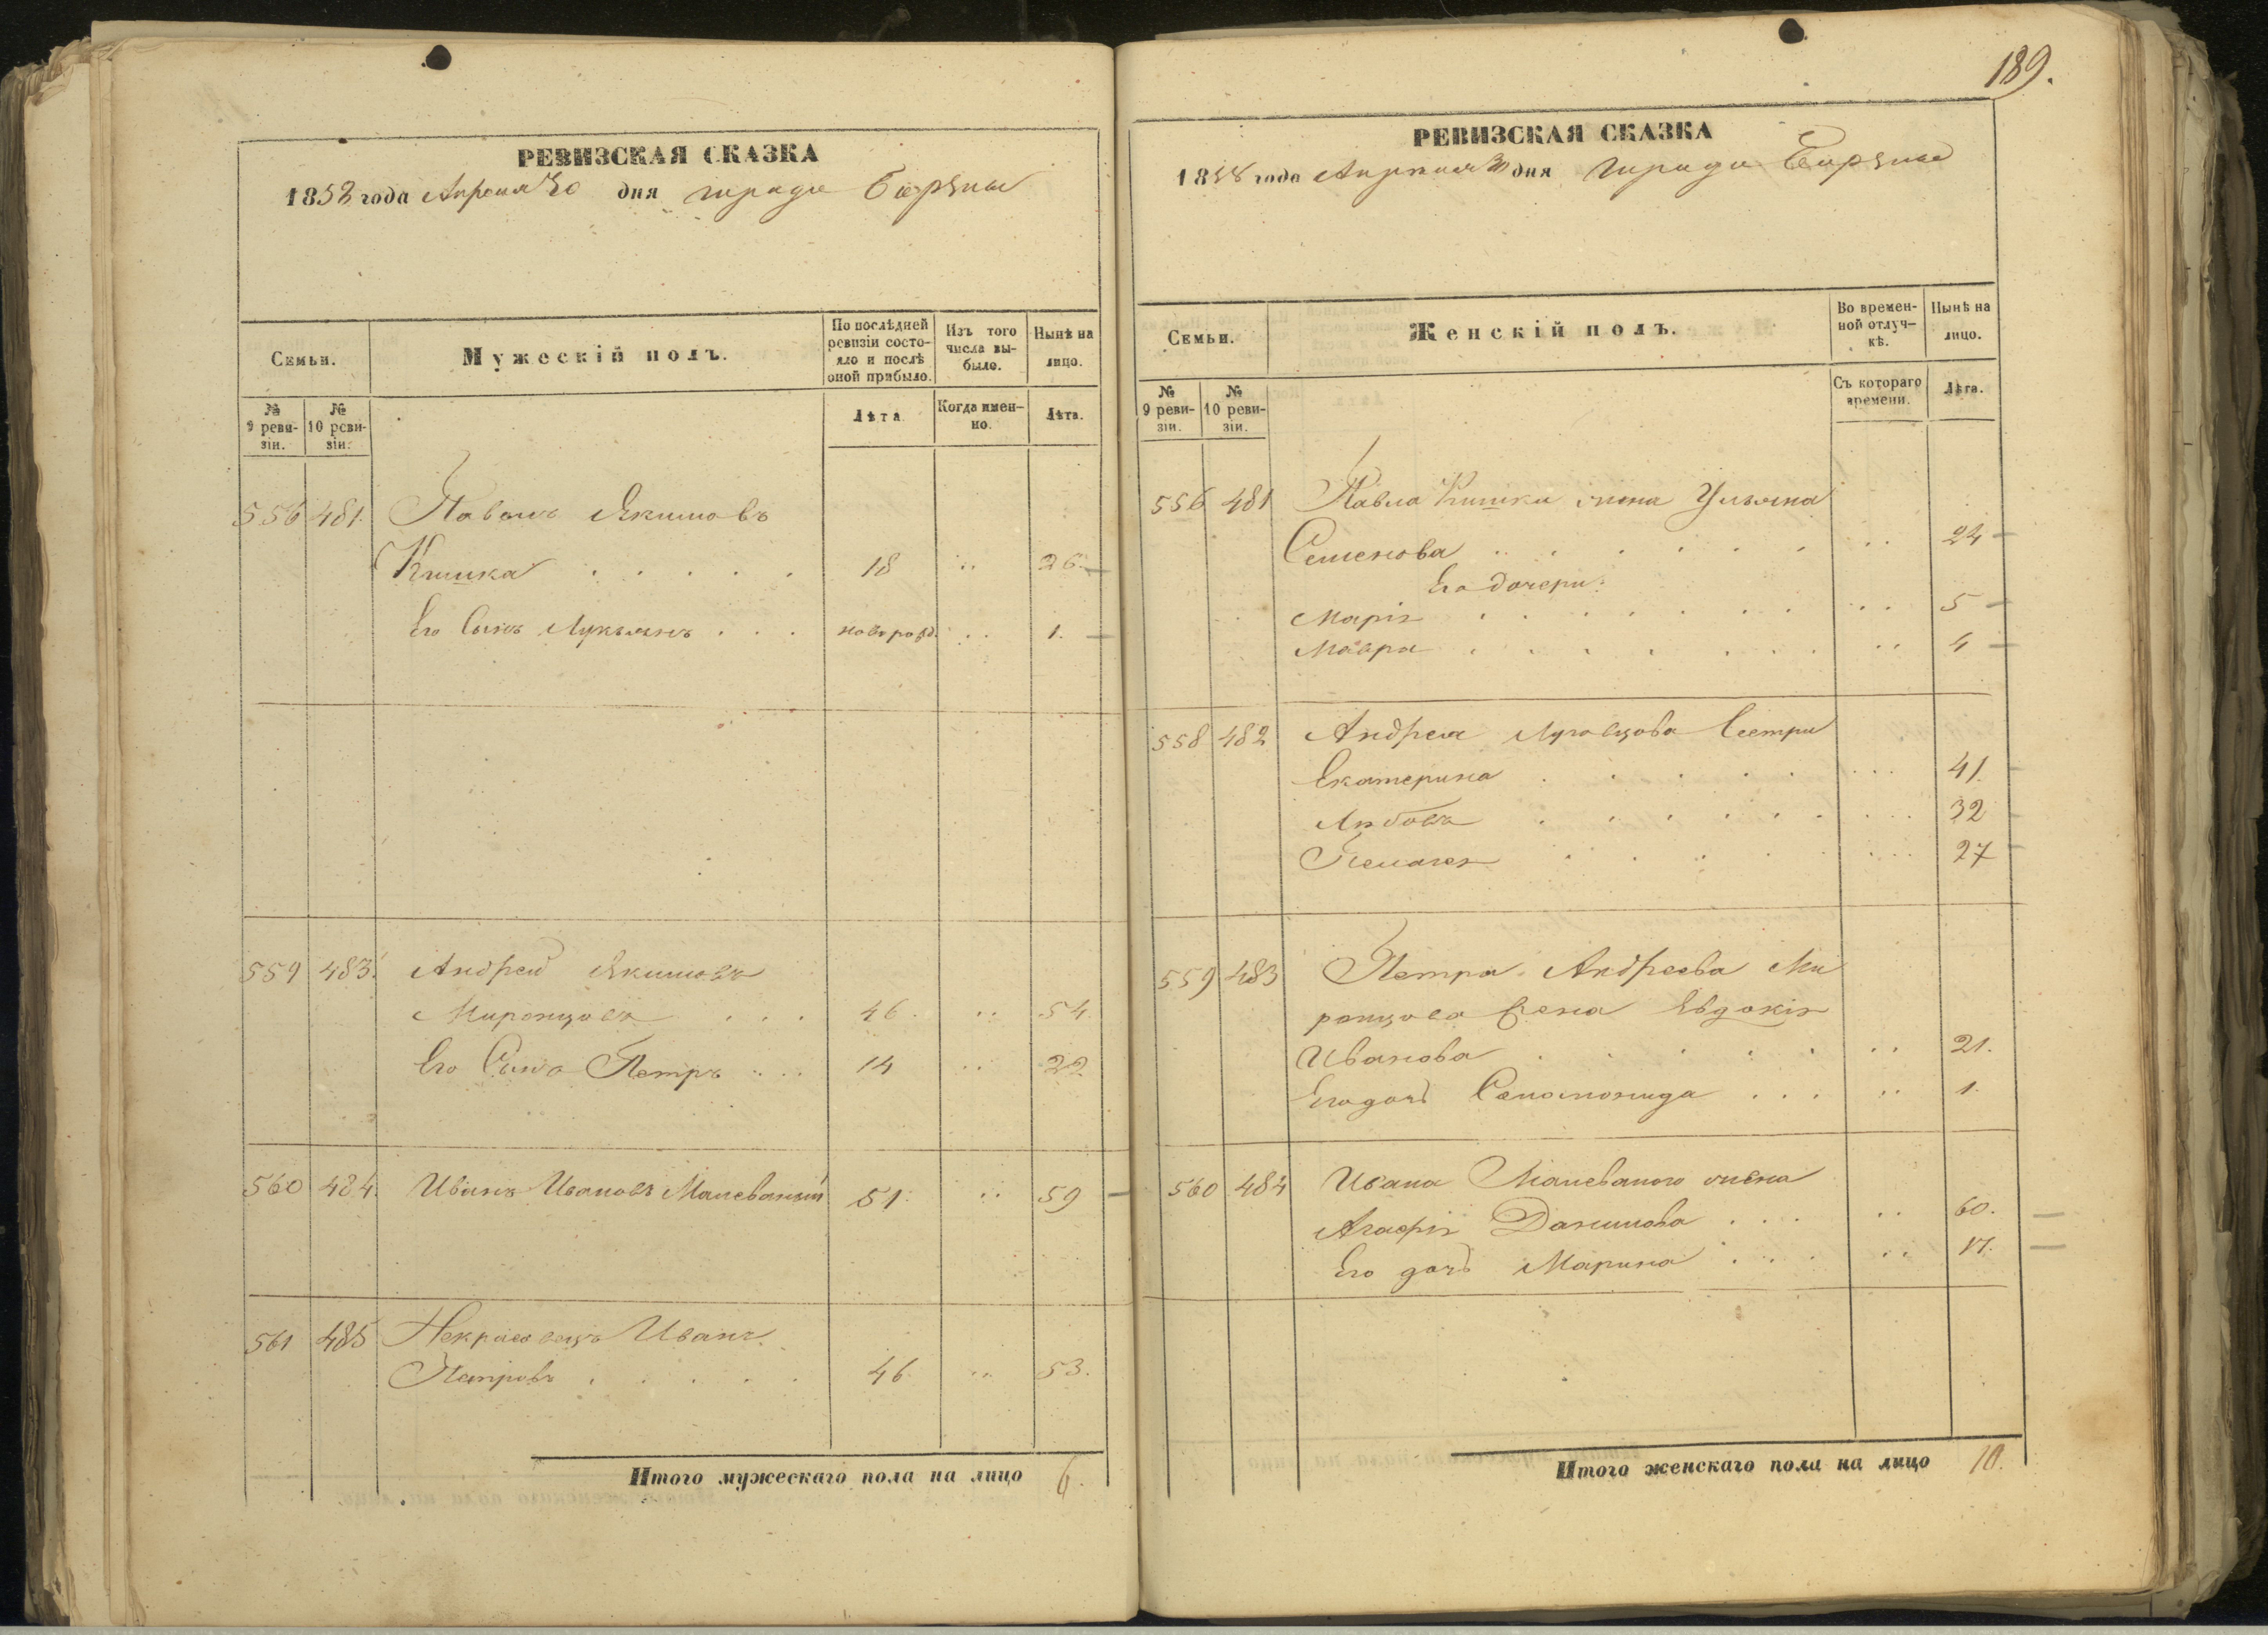 РЕВИЗСКАЯ СКАЗКА
1858 года Апреля 30 дня города Борзны
Семьи.
Мужескій полъ.
По послѣдней ревизіи состояло и послѣ оной прибыло.
Изъ того числа выбыло.
Нынѣ на лицо.
№ 9 ревизіи.
№ 10 ревизіи.
Лѣта
Когда именно.
Лѣта.
556 481. Павелъ Якимовъ
Кишка . . . . . 18 .. 26.
Его Сынъ Лукьянъ . . . новорожд. .. 1.
559 483. Андрей Якимовъ
Миронцовъ . . . 46. .. 54
Его Сынъ Петръ . . . 14 .. 22
560 484. Иванъ Ивановъ Малеваный 51. .. 59
561 485 Некрасовецъ Иванъ
Петровъ . . . . . 46 .. 53.
Итого мужескаго пола на лицо 6.
189.
РЕВИЗСКАЯ СКАЗКА
1858 года Апреля 30 дня города Борзны
Семьи.
Женскій полъ.
Во временной отлучкѣ.
Нынѣ на лицо.
№ 9 ревизіи.
№ 10 ревизіи.
Съ котораго времени.
Лѣта.
556 481 Павла Кишки жена Ульяна
Семенова . . . . . . .. 24
Его дочери:
Марія . . . . . . . ... 5
Мавра . . . . . . . .. 4
558 482 Андрея Сестри
Екатерина . . . . . ... 41.
Любовь . . . . . . ... 32
Пелагея . . . . . ... 27
559 483 Петра Андреева Ми
ронцова жена Евдокія
Иванова . . . . . .. 21.
Его дочь . . . .. 1.
560 484 Ивана Малеваного жена
Агафія Данилова . . . .. 60.
Его дочь Марина . . . .. 17.
Итого женскаго пола на лицо 10.